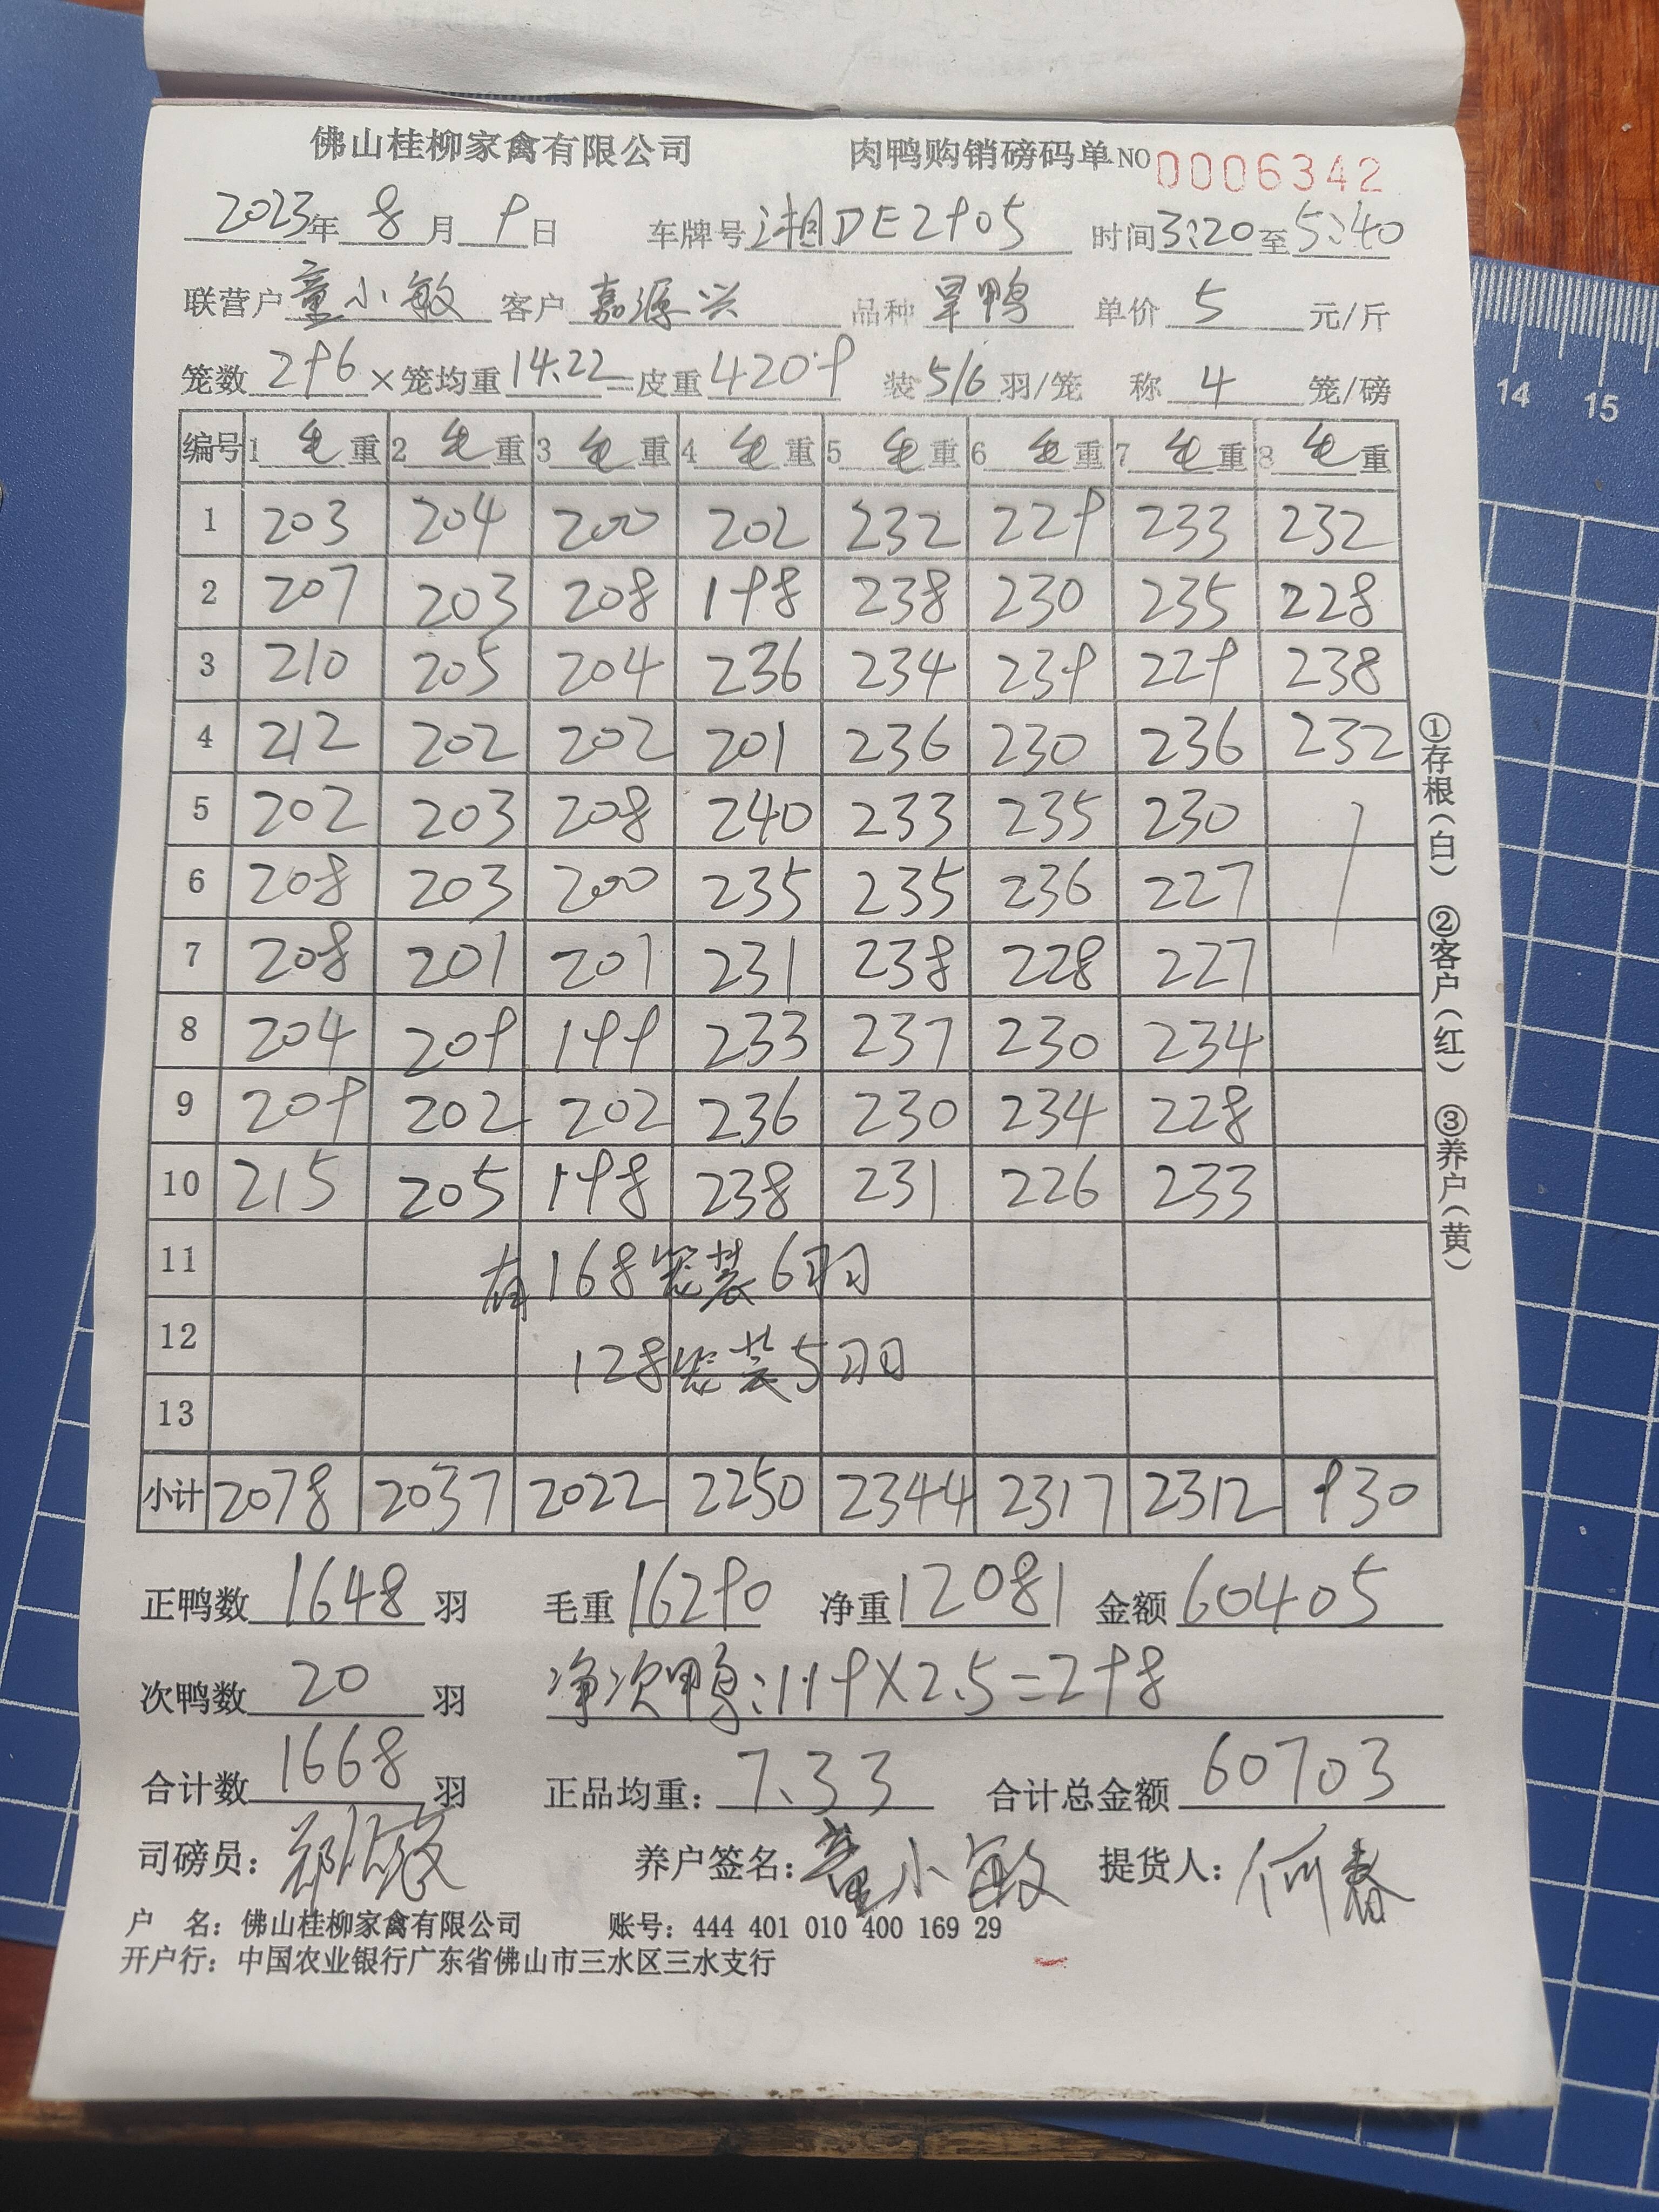 佛山桂柳家禽有限公司 肉鸭购销磅码单 NO 0006342
2023年 8月 9日 车牌号 湘DE2905 时间 3:20 至 5:40
联营户 童小敏 客户 嘉源兴 品种 旱鸭 单价 5 元/斤
笼数 296 ×笼均重 14.22 =皮重 4209 装 5/6 羽/笼 称 4 笼/磅
编号 1 毛重 2 毛重 3 毛重 4 毛重 5 毛重 6 毛重 7 毛重 8 毛重
1 203 204 200 202 232 229 233 232
2 207 203 208 198 238 230 235 228
3 210 205 204 236 234 239 229 238
4 212 202 202 201 236 230 236 232
5 202 203 208 240 233 235 230
6 208 203 200 235 235 236 227
7 208 201 201 231 238 228 227
8 204 209 199 233 237 230 234
9 209 202 202 236 230 234 228
10 215 205 198 238 231 226 233
11 有168笼装6羽
12 128笼装5羽
13
小计 2078 2037 2022 2250 2344 2317 2312 930
正鸭数 1648 羽 毛重 16290 净重 12081 金额 60405
次鸭数 20 羽 净次鸭:119×2.5=298
合计数 1668 羽 正品均重: 7.33 合计总金额 60703
司磅员: 养户签名: 童小敏 提货人: 何春
户 名: 佛山桂柳家禽有限公司 账号: 444 401 010 400 169 29
开户行: 中国农业银行广东省佛山市三水区三水支行
①存根(白) ②客户(红) ③养户(黄)
14 15